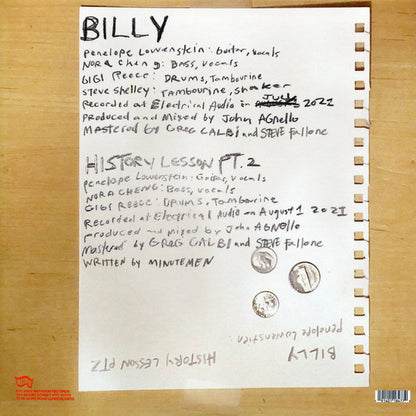 BILLY
Penelope Lowenstein: Guitar, vocals
NORA Cheng: BASS, vocals
GIGI Reece: DRUMS, Tambourine
Steve Shelley: Tambourine, shaker
JULY
Recorded at Electrical Audio in 2021
Produced and Mixed by John AGnello
Mastered by GREG CALBI and STEVE Fallone
HISTORY LESSON PT. 2
Penelope Lowenstein: Guitar, vocals
NORA CHENG: Bass, vocals
GIGI REECE: DRUMS, Tambourine
Recorded at Electrical Audio on August 1 2021
produced and mixed by John AGNEllo
Mastered by GREG CALBI and STEVE Fallone
WRITTEN by MINUTEMEN
BILLY
penelope Lowenstien:
HISTORY LESSON PT2